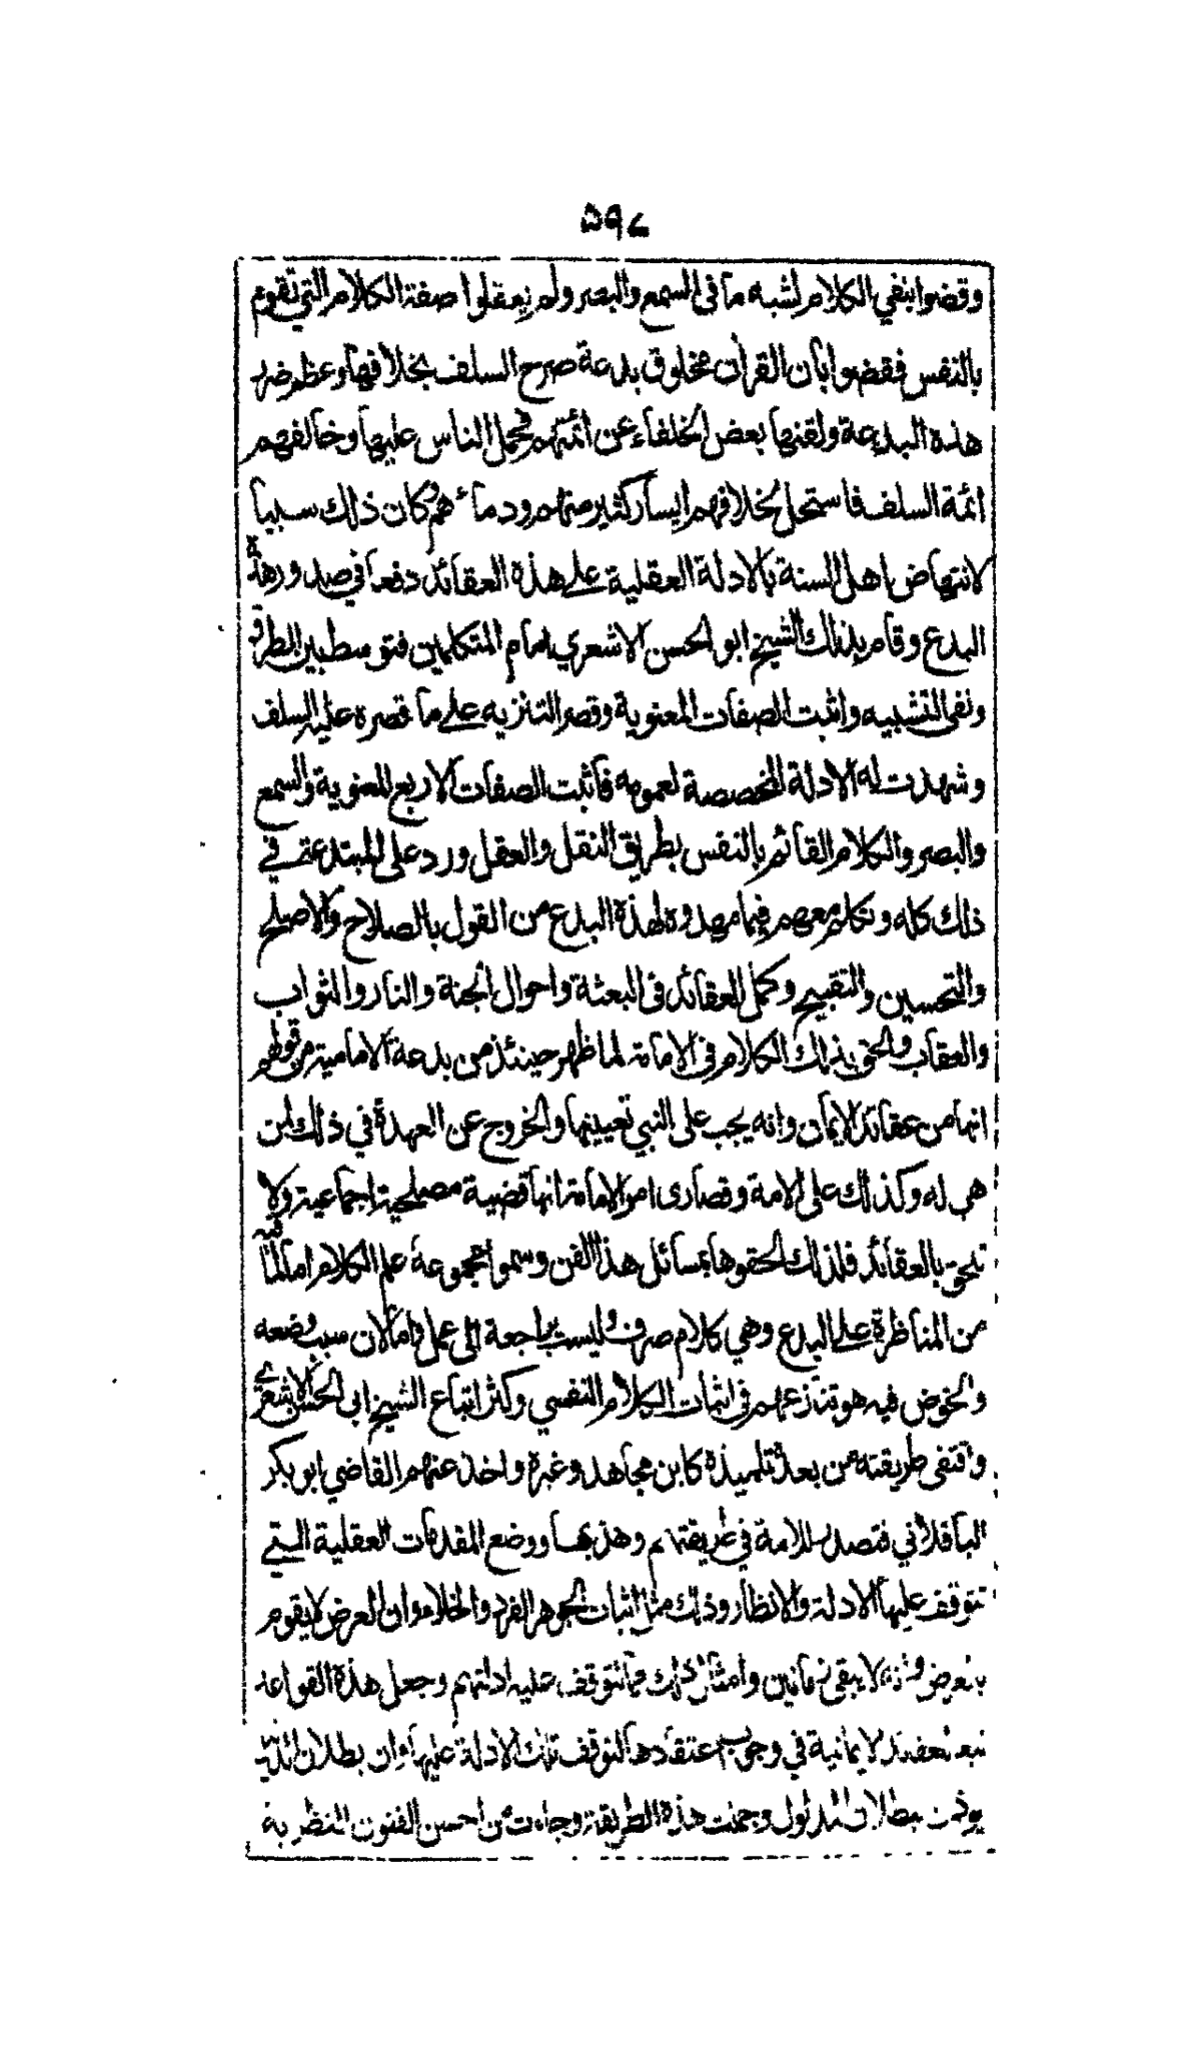 ۵۹۷
وقضوا بنفي الكلام لشبه ما فى السمع والبصر ولم يعقلوا صفة الكلام التي تقوم
بالنفس فقضوا بان القران مخلوق بدعة صرح السلف بخلافها وعظم ضرر
هذه البدعة ولقنها بعض الخلفاء عن ائمتهم فحمل الناس عليها وخالفهم
ائمة السلف فاستحل بخلافهم ايسار كثير منهم ودماءهم وكان ذلك سببا
لانتهاض اهل السنة بالادلة العقلية على هذه العقائد دفعا في صدور هذه
البدع وقام بذلك الشيخ ابو الحسن الاشعري امام المتكلمين فتوسط بين الطرق
ونفى التشبيه واثبت الصفات المعنوية وقصر التنزيه على ما قصره عليه السلف
وشهدت له الادلة المخصصة لعمومه فاثبت الصفات الاربع المعنوية والسمع
والبصر والكلام القائم بالنفس بطريق النقل والعقل ورد على المبتدعة في
ذلك كله وتكلم معهم فيما مهدوه لهذه البدع من القول بالصلاح والاصلح
والتحسين والتقبيح وكمل العقائد فى البعثة واحوال الجنة والنار والثواب
والعقاب والحق بذلك الكلام فى الامامة لما ظهر حينئذ من بدعة الامامية من قولهم
انها من عقائد الايمان وانه يجب على النبي تعيينها والخروج عن العهدة في ذلك لمن
هى له وكذلك على الامة وقصارى امر الامامة انها قضية مصلحية اجماعية ولا
تلحق بالعقائد فلذلك الحقوها بمسائل هذا الفن وسموا مجموعة علم الكلام اما لما فيه
من المناظرة على البدع وهي كلام صرف وليست براجعة الى عمل واما لان سبب وضعه
والخوض فيه هو تنازعهم فى اثبات الكلام النفسي وكثر اتباع الشيخ ابى الحسن الاشعري
واقتفى طريقته من بعده تلميذه كابن مجاهد وغيره واخذ عنهم القاضي ابو بكر
الباقلاني فتصدر للامامة في طريقتهم وهذبها ووضع المقدمات العقلية التي
تتوقف عليها الادلة والانظار وذلك مثل اثبات الجوهر الفرد والخلاء وان العرض لا يقوم
بالعرض وانه لا يبقى زمانين وامثال ذلك مما تتوقف عليه ادلتهم وجعل هذه القواعد
تبعا للعقائد الايمانية في وجوب اعتقادها لتوقف تلك الادلة عليها وان بطلان الدليل
يوذن ببطلان المدلول وجملت هذه الطريقة وجاءت من احسن الفنون النظرية